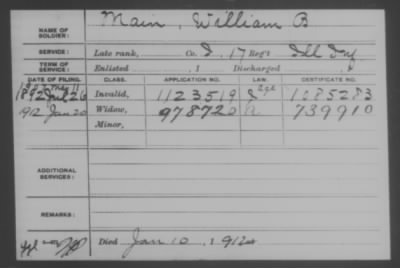 NAME OF SOLDIER: Main, William B
SERVICE: Late rank, Co. D, 17 Reg't Ill Inf
TERM OF SERVICE: Enlisted , 1 Discharged , 1
DATE OF FILING. CLASS. APPLICATION NO. LAW. CERTIFICATE NO.
1892 Jul 26 Invalid, 1123519 1085283
1912 Jan 20 Widow, 978720 739910
Minor,
ADDITIONAL SERVICES:
REMARKS:
Died Jan 10, 1912